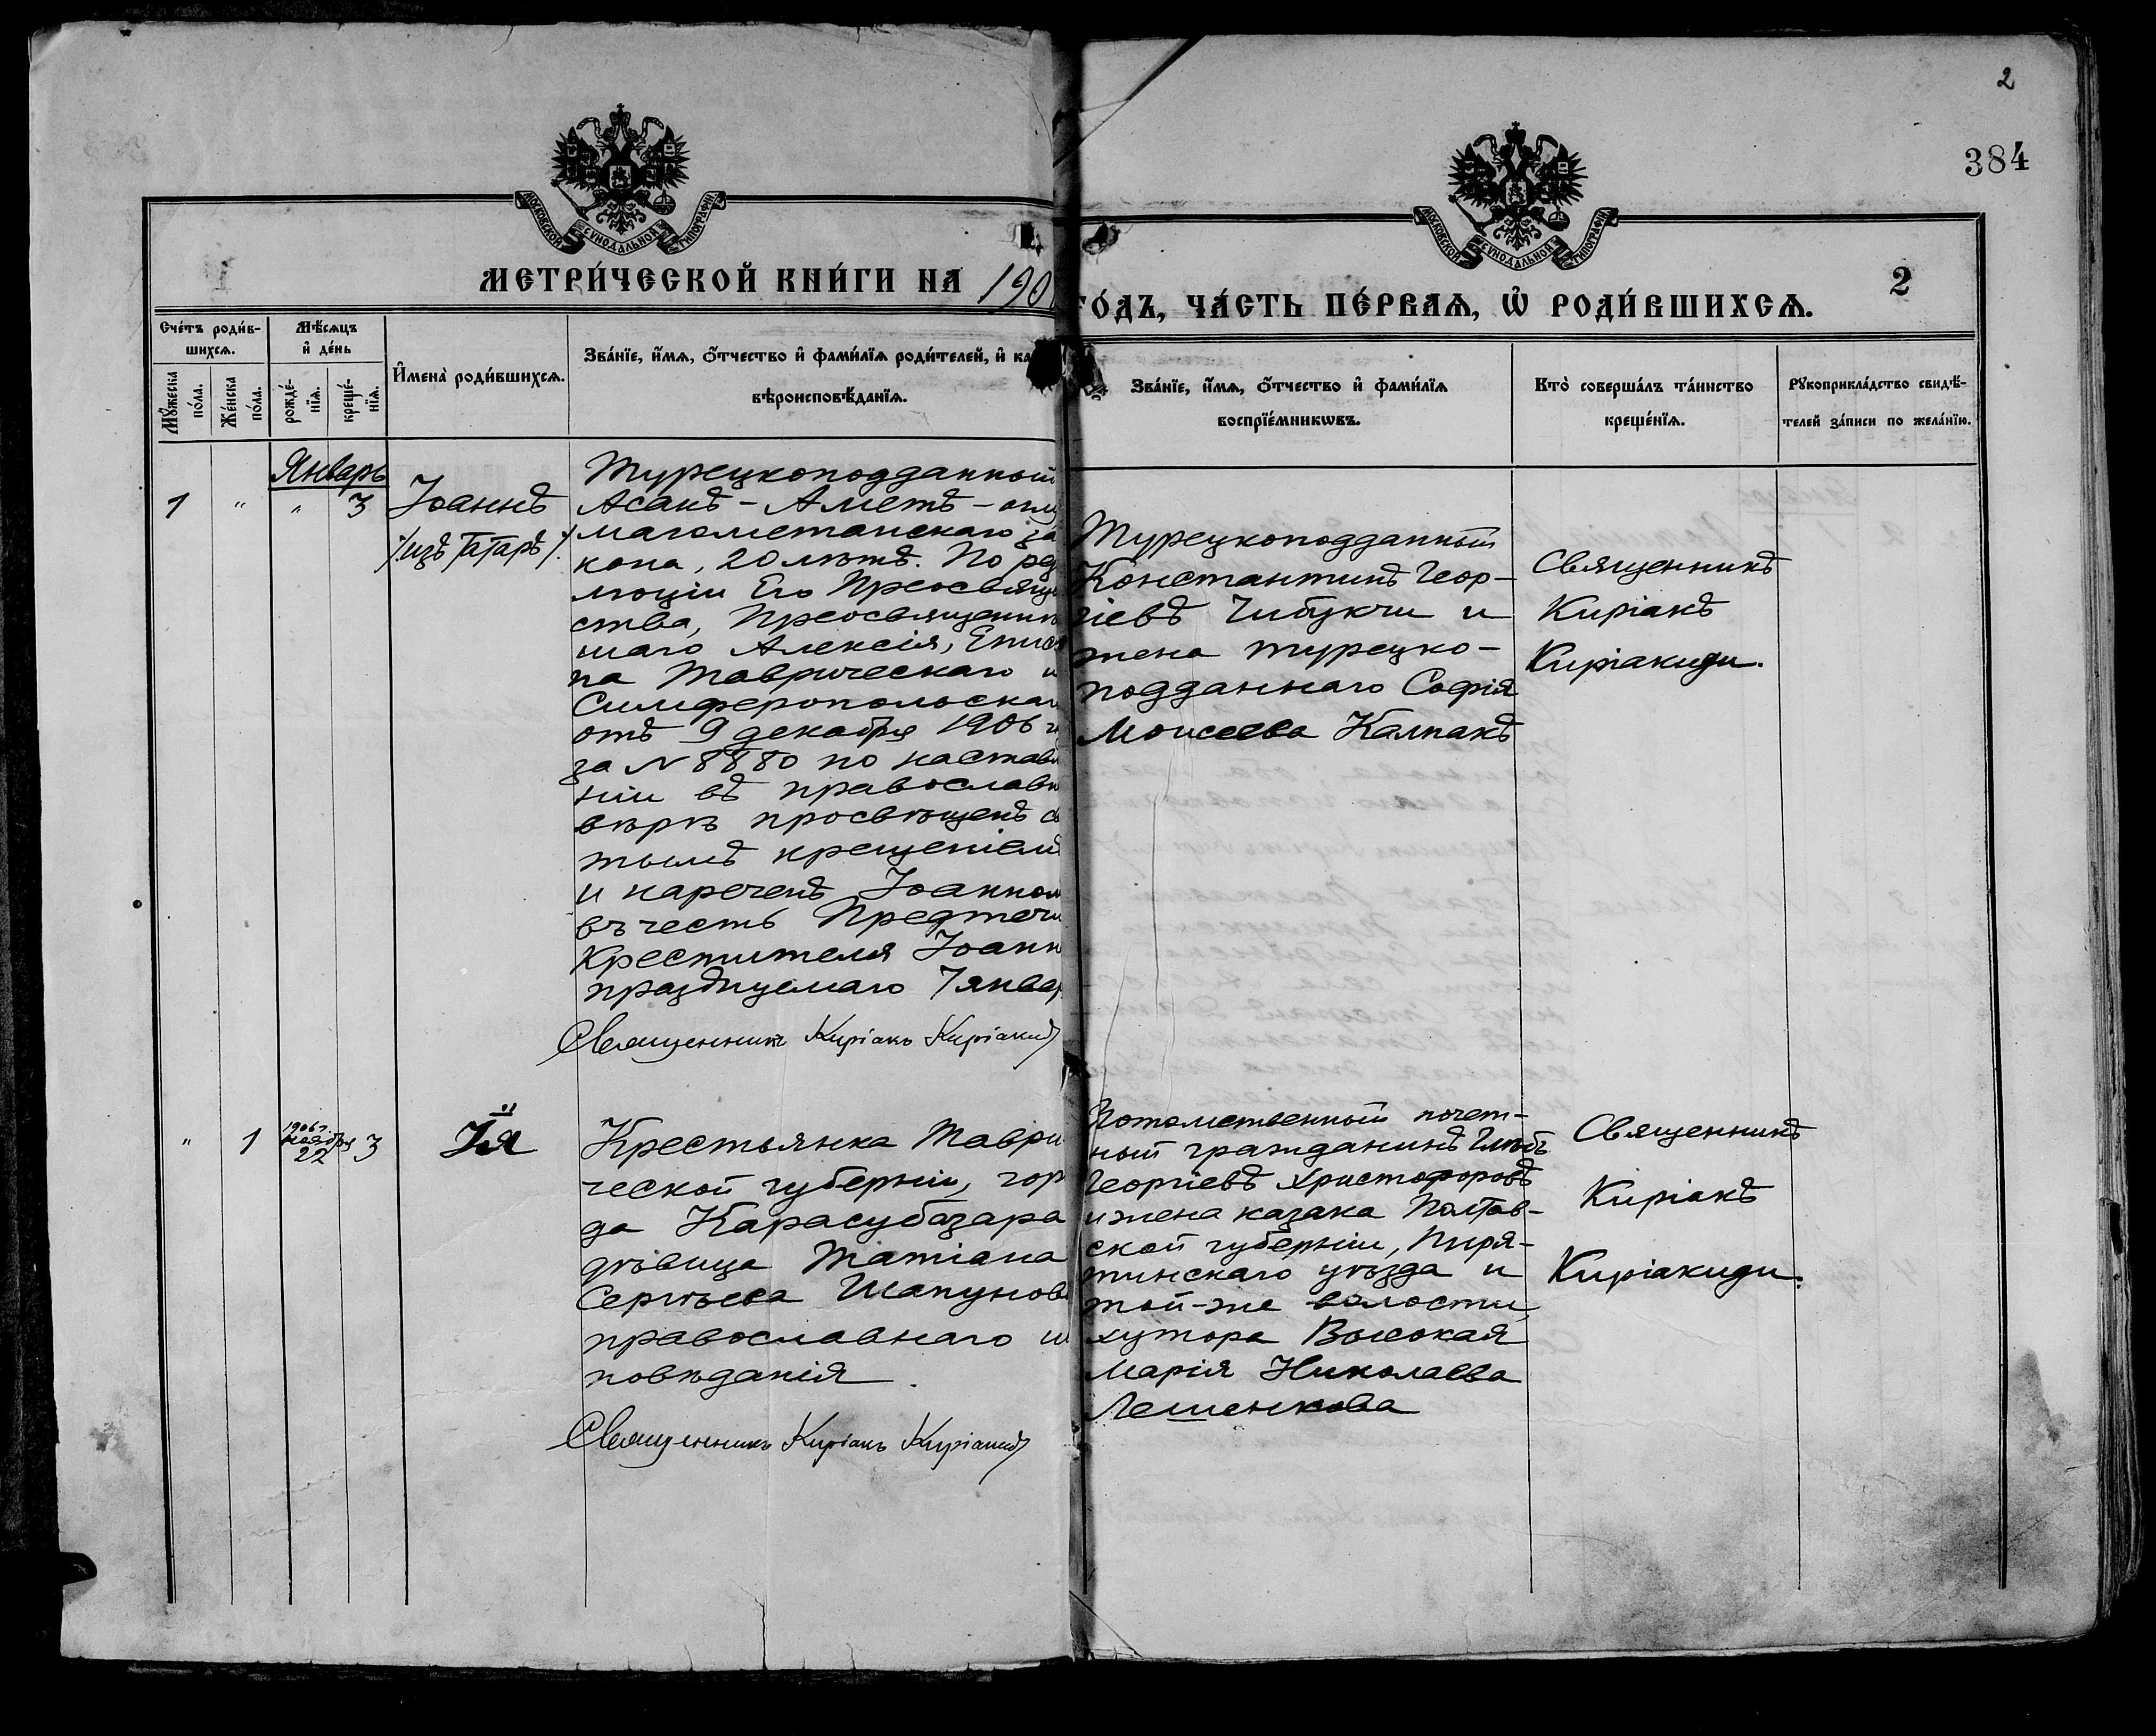 2
384
МОСКОВСКОЙ СѴНОДАЛЬНОЙ ТИПОГРАФІИ
МОСКОВСКОЙ СѴНОДАЛЬНОЙ ТИПОГРАФІИ
МЕТРИ́ЧЕСКОЙ КНИ́ГИ НА 190
ГО́ДЪ, ЧА́СТЬ ПЕ́РВАѦ, Ѡ҆ РОДИ́ВШИХСѦ.
2
Сче́тъ роди́в-
шихсѧ.
Мѣ́сѧцъ
и҆ де́нь
Мꙋ́жеска
по́ла.
Же́нска
по́ла.
рожде́-
нїѧ.
креще́-
нїѧ.
И҆мена̀ роди́вшихсѧ.
Зва́нїе, и҆́мѧ, ѻ҆́тчество и҆ фами́лїѧ роди́телей, и҆ ка
вѣроисповѣ́данїѧ.
Зва́нїе, и҆́мѧ, ѻ҆́тчество и҆ фами́лїѧ
воспрїе́мникωвъ.
Кто̀ соверша́лъ та́инство
креще́нїѧ.
Рꙋкоприкла́дство свидѣ́-
телей за́писи по жела́нїю.
Январь
1 " " 3
Іоаннъ
/изъ татаръ/.
Турецкоподданный
Асанъ-Аметъ-оглу
магометанскаго за
кона, 20 лѣтъ. По резо
люціи Его Преосвящен
ства, Преосвященнѣй
шаго Алексія, Еписко
па Таврическаго и
Симферопольскаго
отъ 9 декабря 1906 г.
за N 8880 по наставле
ніи въ православн
вѣрѣ просвѣщенъ с
тымъ крещеніемъ
и нареченъ Іоанном
въ честь Предтечи
Крестителя Іоанн
празднуемаго 7 январ
Священникъ Киріакъ Киріакиди
Турецкоподданный
Константинъ Геор-
гіевъ Чибукчи и
жена турецко-
подданнаго Софія
Моисеева Калпакъ
Священникъ
Киріакъ
Киріакиди.
" 1
1906 г.
ноября
22
3
Ія
Крестьянка Таври
ческой губерніи, горо
да Карасубазара
дѣвица Татіана
Сергѣева Шапунова
православнаго ис
повѣданія.
Священникъ Киріакъ Киріакиди
Потомственный почет-
ный гражданинъ Глѣбъ
Георгіевъ Христофоровъ
и жена казака Полтав-
ской губерніи, Пиря-
тинскаго уѣзда и
той-же волости,
хутора Высокая
Марія Николаева
Лешенкова
Священникъ
Киріакъ
Киріакиди.